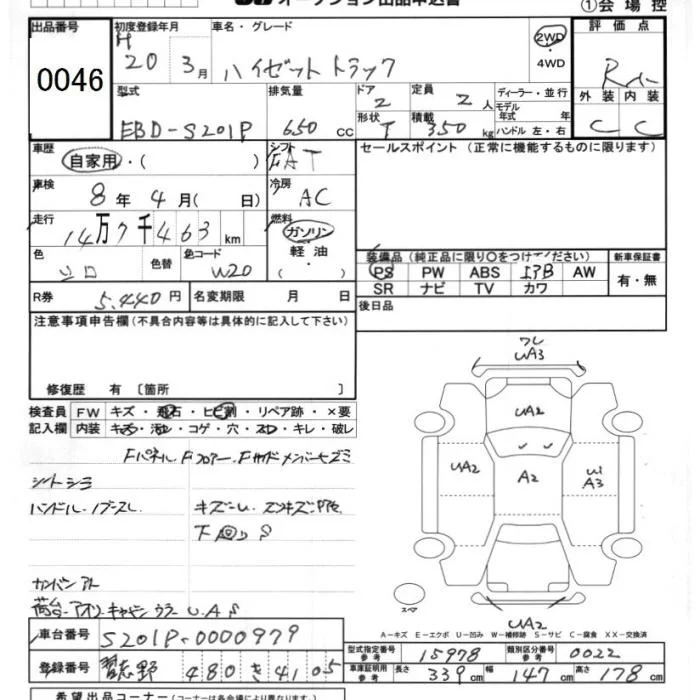 オークション出品申込書
①会場控
出品番号
0046
初度登録年月
H 20 3月
車名・グレード
ハイゼットトラック
2WD
・
4WD
評価点
外装 内装
C C
型式
EBD-S201P
排気量
650 cc
ドア
2
定員
2人
形状
T
積載
350 kg
ディーラー・並行
モデル
年式 年
ハンドル 左・右
車歴
自家用・( )
シフト
FAT
セールスポイント(正常に機能するものに限ります)
車検
8年4月( 日)
冷房
AC
走行
14万7千463km
燃料
ガソリン
・
軽油
・
色
シロ
色替
色コード
W20
装備品(純正品に限り○をつけてください)
PS PW ABS エアB AW
SR ナビ TV カワ
新車保証書
有・無
R券
5,440円
名変期限 月 日
後日品
注意事項申告欄(不具合内容等は具体的に記入して下さい)
修復歴 有 〔箇所 〕
検査員
記入欄
FW キズ・飛石・ヒビ割・リペア跡・×要
内装 キズ・汚れ・コゲ・穴・スレ・キレ・破レ
Fパネル、Fフロアー、Fサイドメンバーヒズミ
シートシミ
ハンドル、ノブスレ
下回りS
カンバンアト
荷台・アオリ・キャビンウラ U.A.S
ワレ
UA3
UA2
UA2
A2
A3
UA2
スペア
A-キズ E-エクボ U-凹み W-補修跡 S-サビ C-腐食 XX-交換済
車台番号
S201P-0000979
登録番号
習志野 480 き 4105
型式指定番号
参考
15978
類別区分番号
参考
0022
車体証明用
参考
長さ 339cm 幅 147cm 高さ 178cm
希望出品コーナー
(コーナーは各会場により異なります)